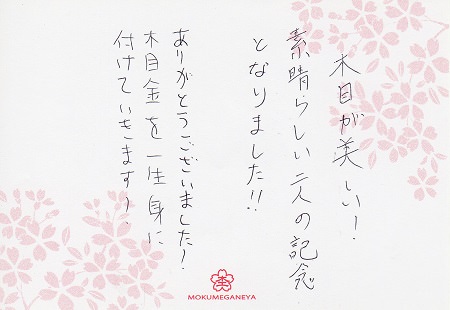 木目が美しい!
素晴らしい二人の記念
となりました!!
ありがとうございました!
木目金を一生身に
付けていきます!
MOKUMEGANEYA